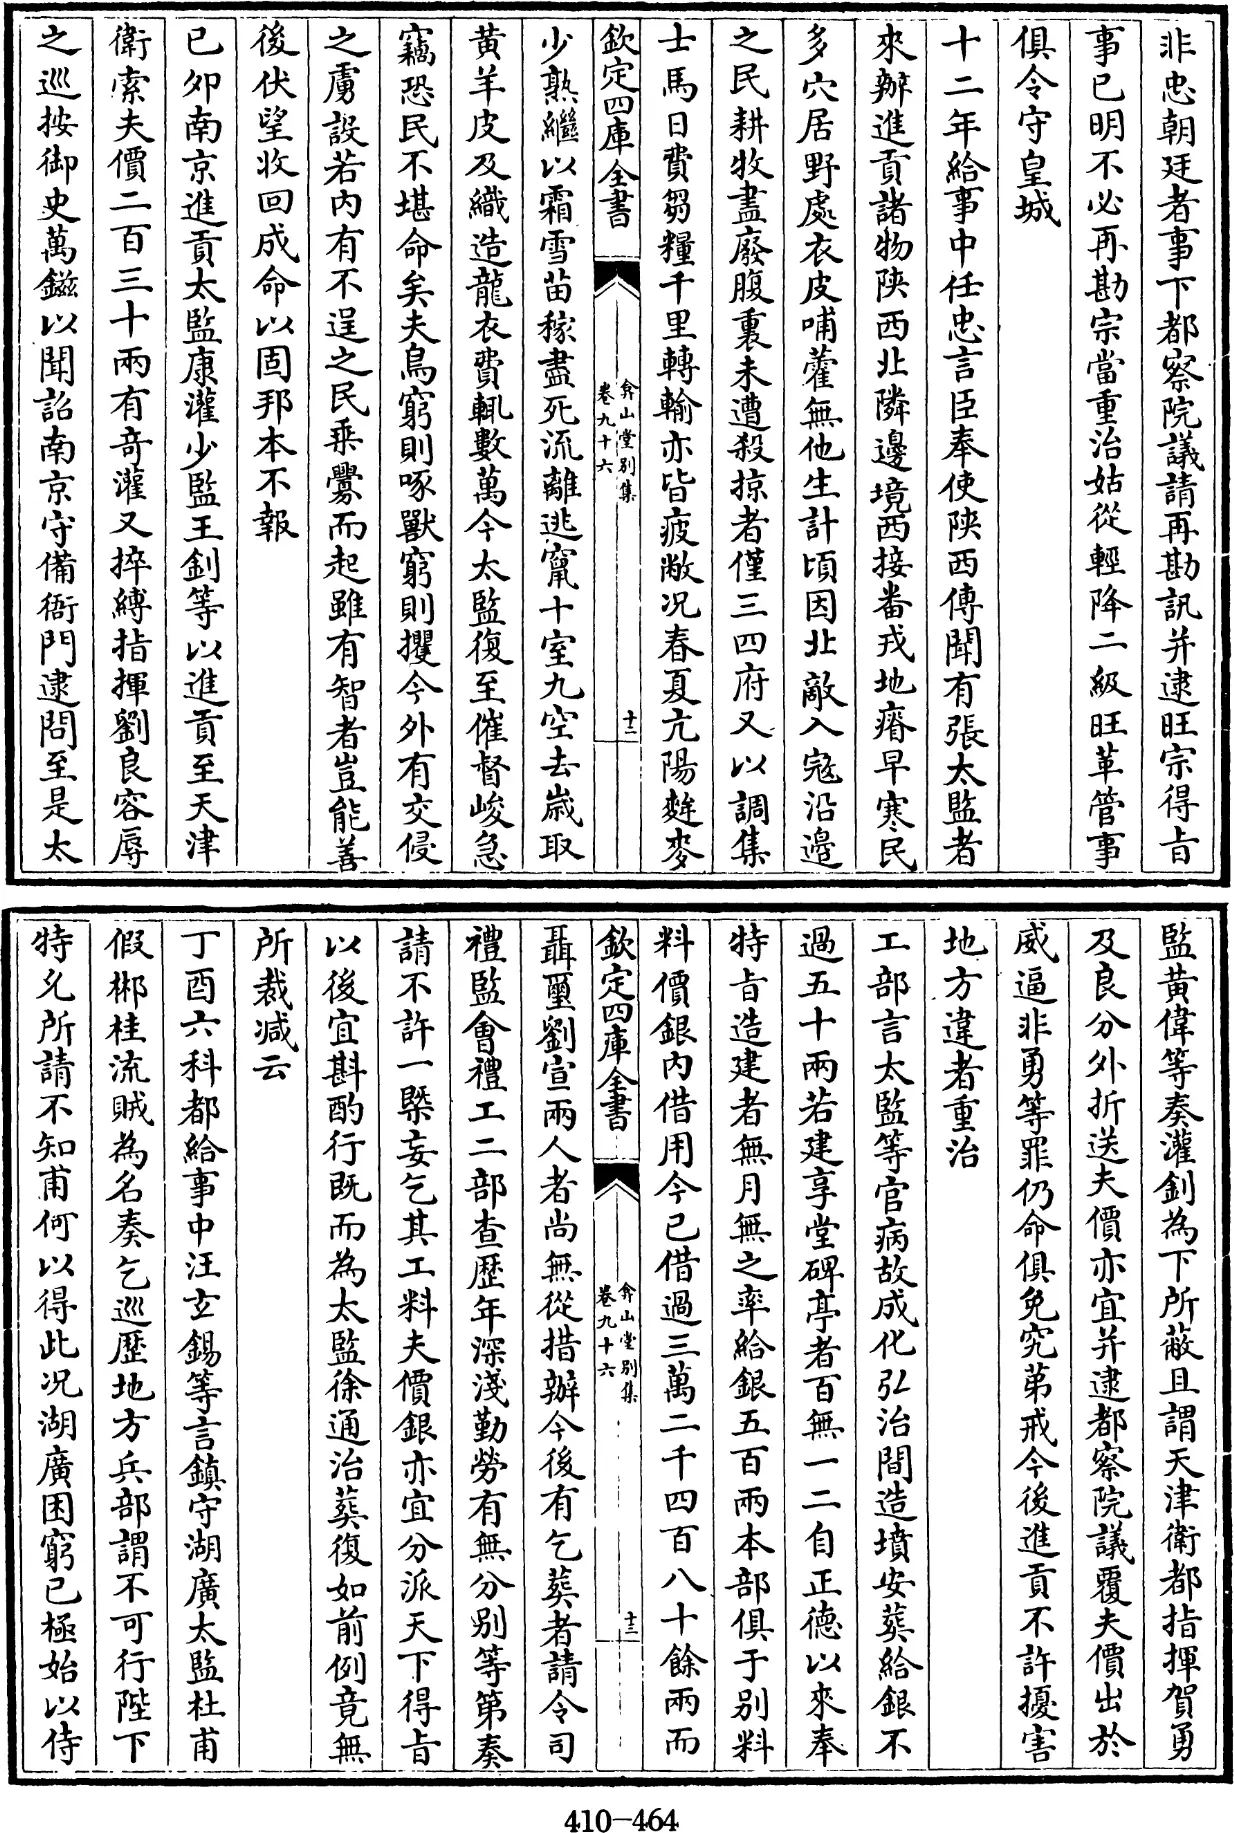 非忠朝廷者事下都察院議請再勘訊并逮旺宗得㫖
事已明不必再勘宗當重治姑從輕降二級旺革管事
俱令守皇城
十二年給事中任忠言臣奉使陜西傳聞有張太監者
來辦進貢諸物陜西北隣邊境西接畨戎地瘠早寒民
多穴居野處衣皮哺藿無他生計頃因北敵入寇沿邊
之民耕牧盡廢腹裏未遭殺掠者僅三四府又以調集
士馬日費芻糧千里轉輸亦皆疲敝况春夏亢陽麰麥
欽定四庫全書
弇山堂别集
卷九十六
十二
少熟繼以霜雪苗稼盡死流離逃竄十室九空去嵗取
黄羊皮及織造龍衣費輒數萬今太監復至催督峻急
竊恐民不堪命矣夫鳥窮則啄獸窮則攫今外有交侵
之虜設若内有不逞之民乘釁而起雖有智者豈能善
後伏望收回成命以固邦本不報
已夘南京進貢太監康灌少監王釗等以進貢至天津
衛索夫價二百三十兩有竒灌又捽縛指揮劉良容辱
之巡按御史萬鎡以聞詔南京守備衙門逮問至是太
監黄偉等奏灌釗為下所蔽且謂天津衛都指揮賀勇
及良分外折送夫價亦宜并逮都察院議覆夫價出於
威逼非勇等罪仍命俱免究苐戒今後進貢不許擾害
地方違者重治
工部言太監等官病故成化弘治間造墳安葬給銀不
過五十兩若建享堂碑亭者百無一二自正德以來奉
特㫖造建者無月無之率給銀五百兩本部俱于别料
料價銀内借用今已借過三萬二千四百八十餘兩而
欽定四庫全書
弇山堂别集
卷九十六
十三
聶璽劉宣兩人者尚無從措辦今後有乞葬者請令司
禮監會禮工二部查歴年深淺勤勞有無分别等第奏
請不許一槩妄乞其工料夫價銀亦宜分派天下得㫖
以後宜斟酌行既而為太監徐通治葬復如前例竟無
所裁減云
丁酉六科都給事中汪玄錫等言鎮守湖廣太監杜甫
假郴桂流賊為名奏乞巡歴地方兵部謂不可行陛下
特允所請不知甫何以得此况湖廣困窮已極始以侍
410-464